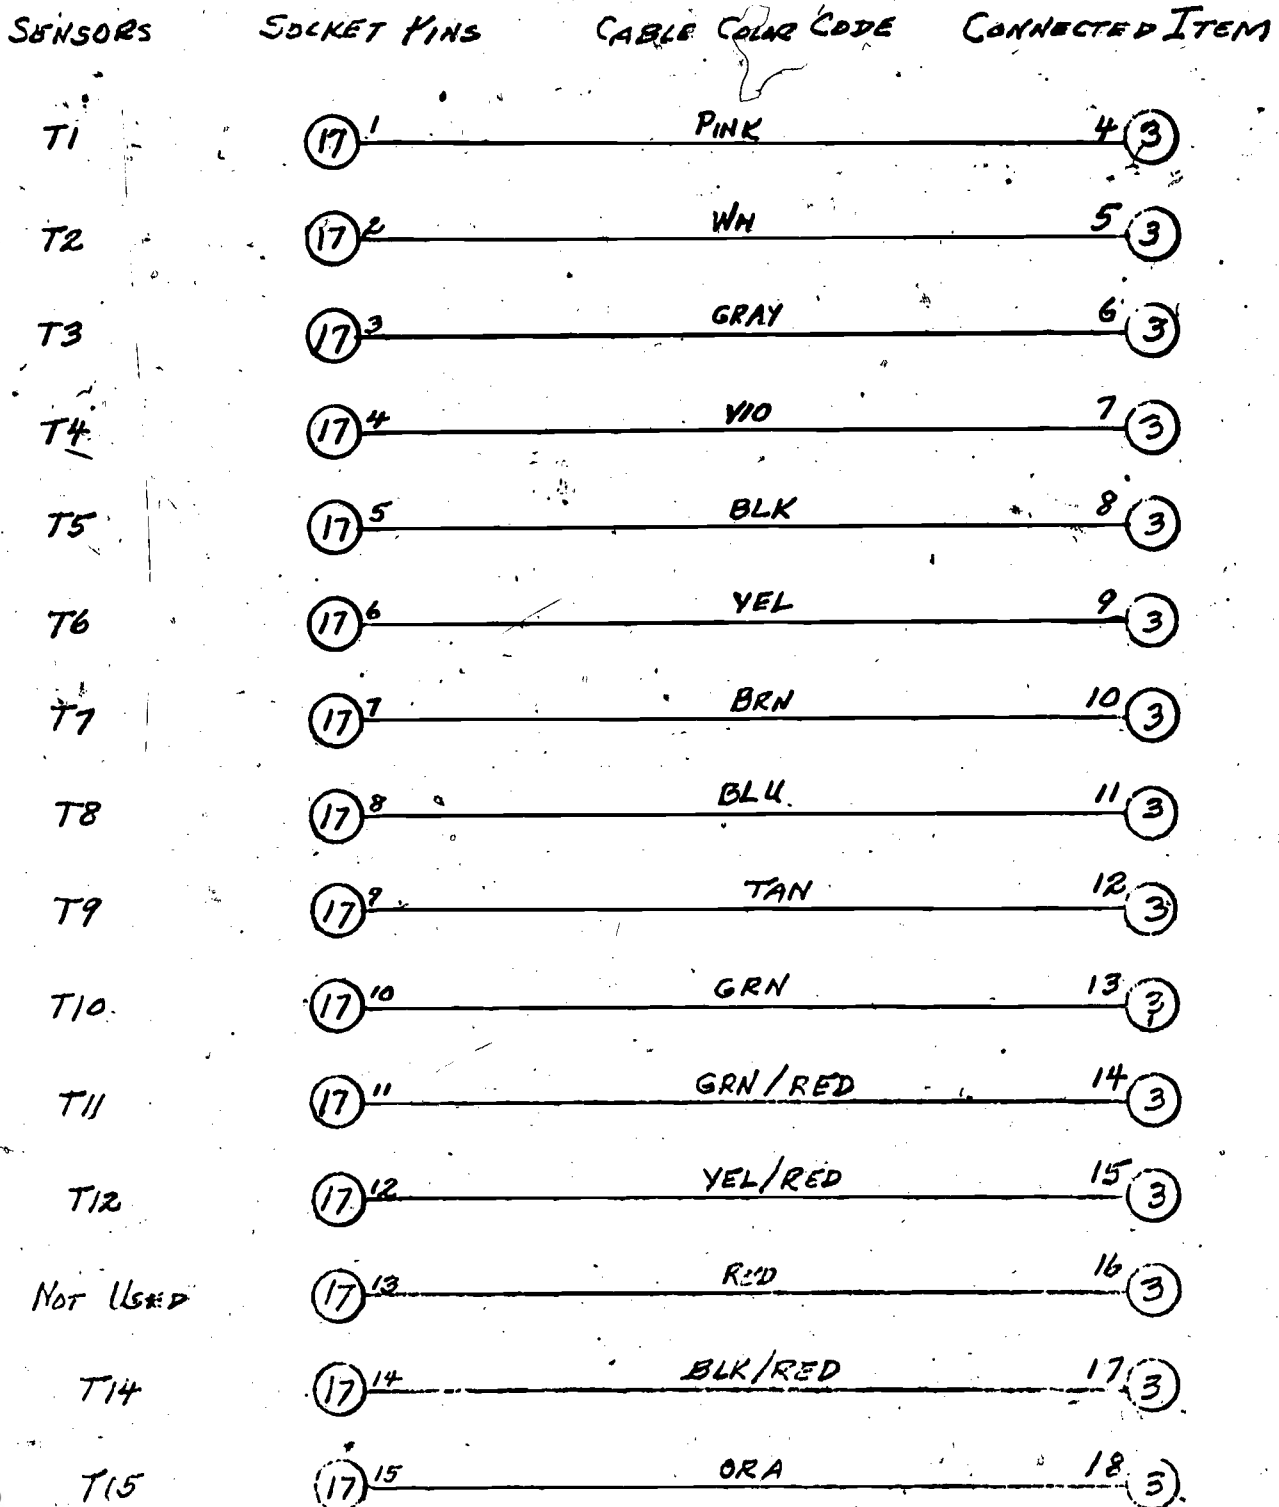 SENSORS SOCKET PINS CABLE COLOR CODE CONNECTED ITEM
T1 17 1 PINK 4 3
T2 17 2 WH 5 3
T3 17 3 GRAY 6 3
T4 17 4 VIO 7 3
T5 17 5 BLK 8 3
T6 17 6 YEL 9 3
T7 17 7 BRN 10 3
T8 17 8 BLU. 11 3
T9 17 9 TAN 12 3
T10 17 10 GRN 13 3
T11 17 11 GRN/RED 14 3
T12 17 12 YEL/RED 15 3
NOT USED 17 13 RED 16 3
T14 17 14 BLK/RED 17 3
T15 17 15 ORA 18 3